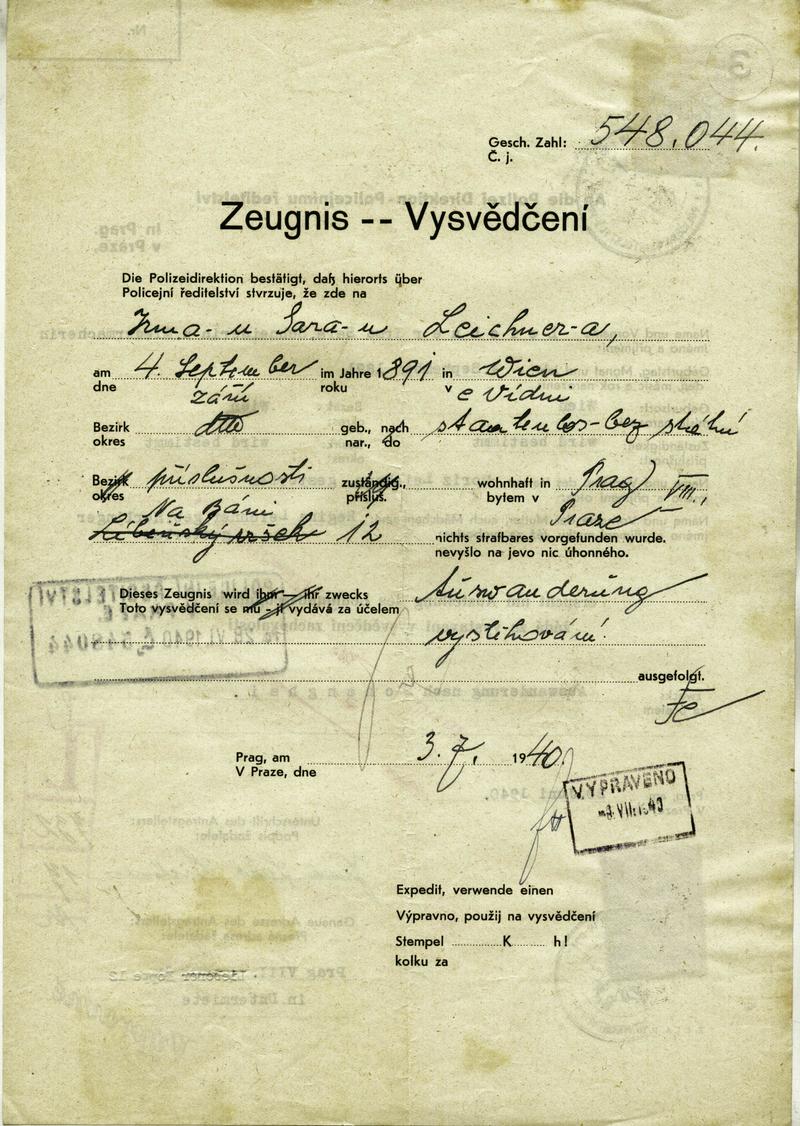 Gesch. Zahl: 548.044.
Č. j.
Zeugnis -- Vysvědčení
Die Polizeidirektion bestätigt, daß hierorts über
Policejní ředitelství stvrzuje, že zde na
Irma- u Sara- u Leichner-a,
am 4. September im Jahre 1891 in Wien
dne září roku v e Vídni
Bezirk dtto geb., nach staatenlos-bez státní
okres nar., do
Bezirk příslušnosti zuständig., wohnhaft in Prag VIII.,
okres přísluš. bytem v Praze
Na Báni
Libeňský vršek 12 nichts strafbares vorgefunden wurde.
nevyšlo na jevo nic úhonného.
Dieses Zeugnis wird ihm — ihr zwecks Auswanderung
Toto vysvědčení se mu - jí vydává za účelem
vystěhování.
ausgefolgt.
Prag, am 3. 7. 1940.
V Praze, dne
VYPRAVENO
Expedit, verwende einen
Výpravno, použij na vysvědčení
Stempel K h!
kolku za